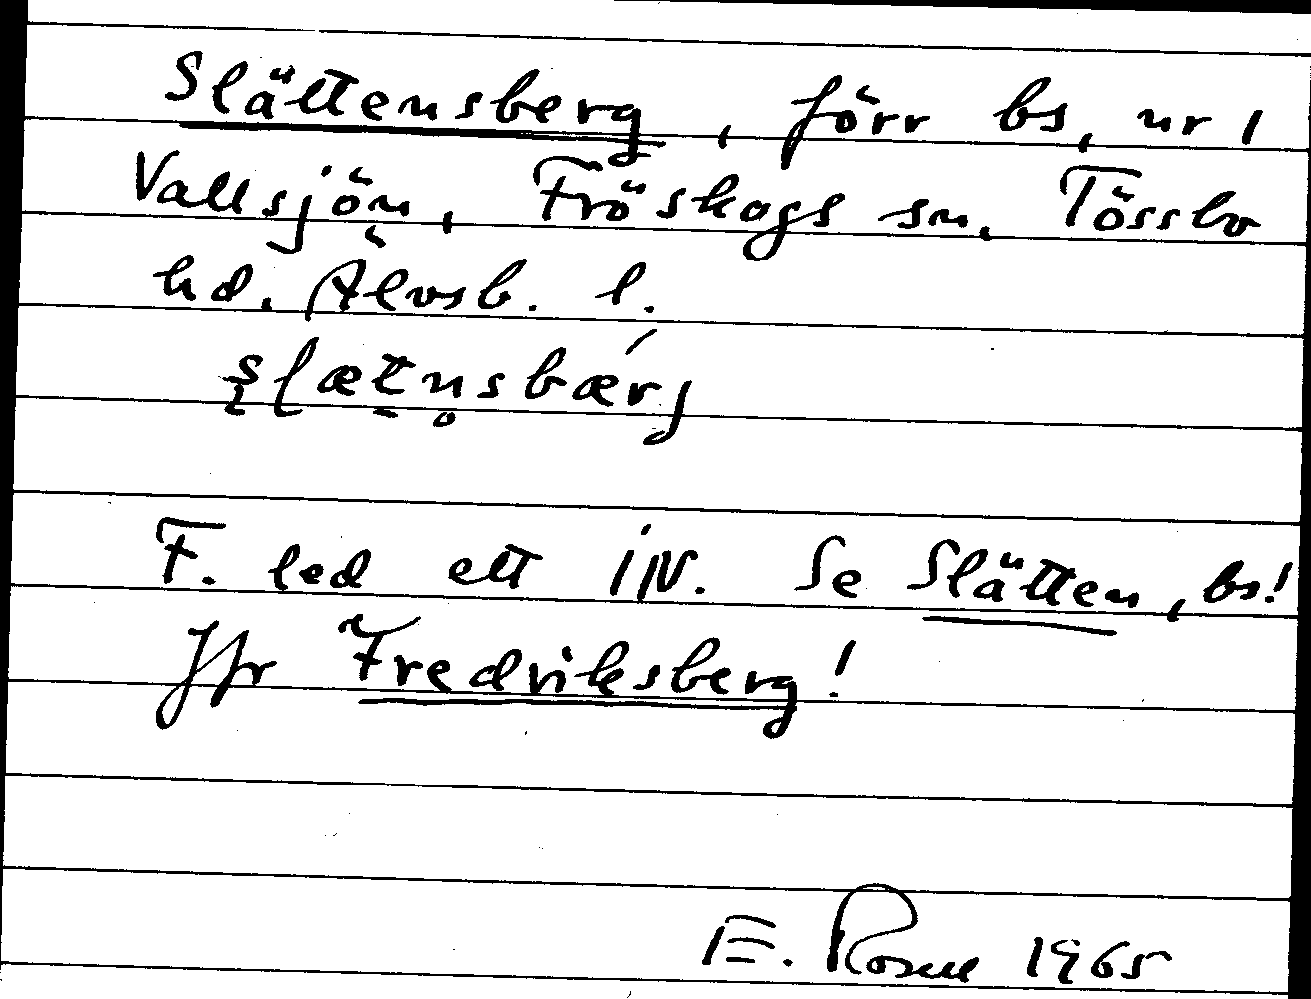 Slättensberg, förr bs, ur 1
Vallsjön, Fröskogs sn, Tössbo
hd. Älvsb. l.
F. led ett IN. Se Slätten, bs!
Jfr Fredriksberg!
E. Rosell 1965